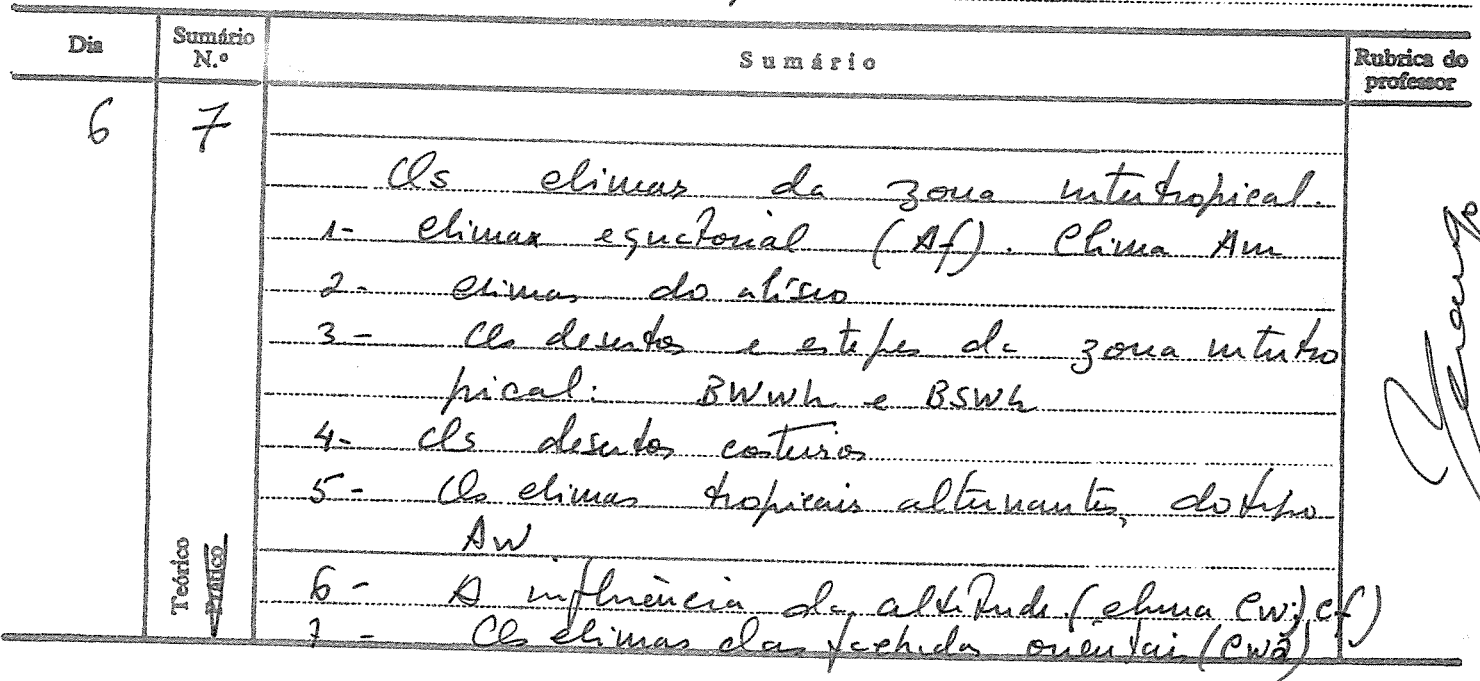 Dia Sumário N.º Sumário Rubrica do professor
6 7
Os climas da zona intertropical.
1- Climas equatorial (Af). Clima Am
2- Climas do alíseo
3- Os desertos e estepes da zona intertro
pical: BWwh e BSwh
4- Os desertos costeiros
5- Os climas tropicais alternantes, do tipo
Aw
6- A influência da altitude (clima Cwi) Cf)
7- Os climas das fachadas orientais (Cwa)
Teórico
Prático